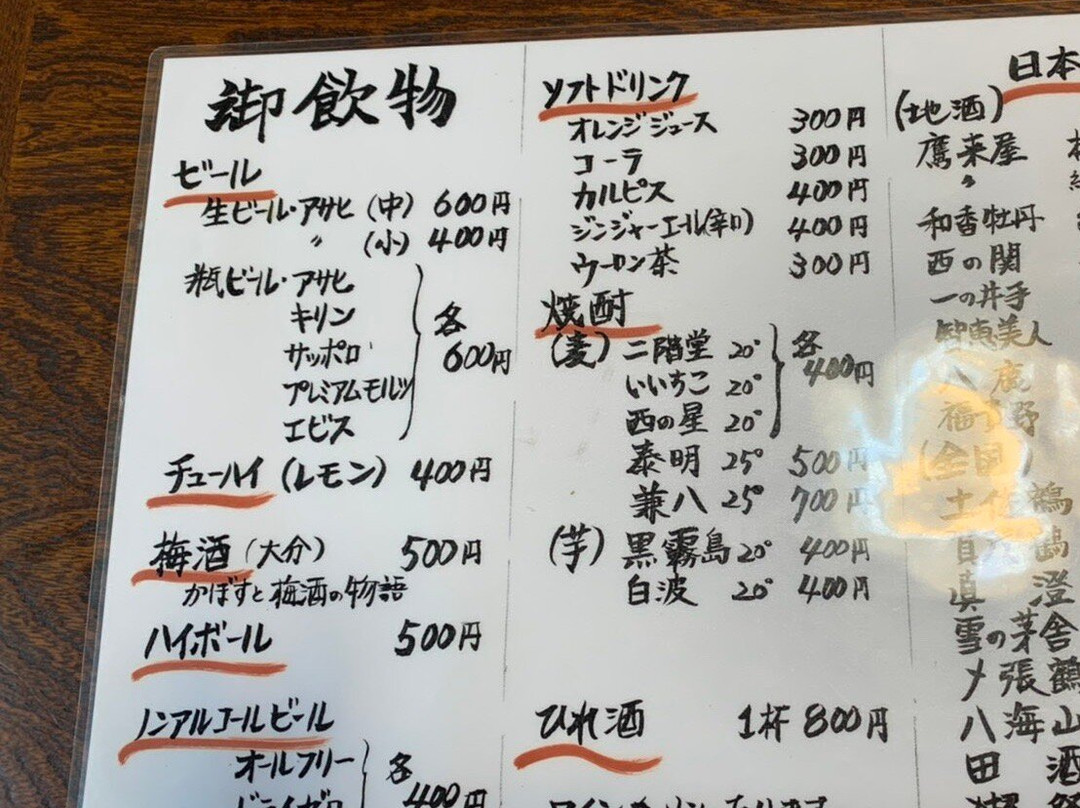 御飲物
ビール
生ビール・アサヒ (中) 600円
〃 (小) 400円
瓶ビール・アサヒ
キリン
サッポロ
プレミアムモルツ
エビス
各
600円
チューハイ (レモン) 400円
梅酒 (大分) 500円
かぼすと梅酒の物語
ハイボール 500円
ノンアルコールビール
オールフリー
ドライゼロ
各
400円
ソフトドリンク
オレンジジュース 300円
コーラ 300円
カルピス 400円
ジンジャーエール(辛口) 400円
ウーロン茶 300円
焼酎
(麦) 二階堂 20°
いいちこ 20°
西の星 20°
各
400円
泰明 25° 500円
兼八 25° 700円
(芋) 黒霧島 20° 400円
白波 20° 400円
ひれ酒 1杯 800円
日本
(地酒)
鷹来屋
〃
和香牡丹
西の関
一の井手
智恵美人
八鹿
(全国)
土佐鶴
真澄
雪の茅舎
〆張鶴
八海山
田酒